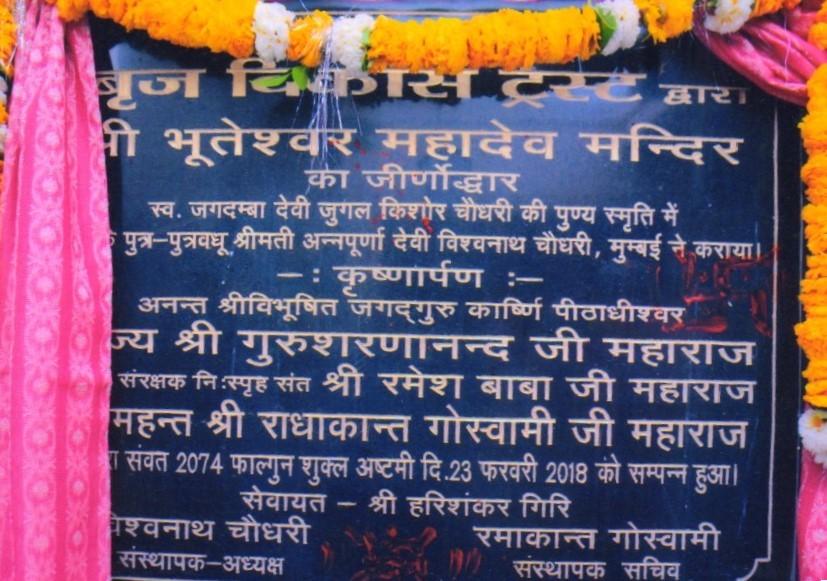 बृज विकास ट्रस्ट द्वारा
श्री भूतेश्वर महादेव मन्दिर
का जीर्णोद्धार
स्व. जगदम्बा देवी जुगल किशोर चौधरी की पुण्य स्मृति में
पुत्र-पुत्रवधू श्रीमती अन्नपूर्णा देवी विश्वनाथ चौधरी, मुम्बई ने कराया।
-: कृष्णार्पण :-
अनन्त श्रीविभूषित जगद्गुरु कार्ष्णि पीठाधीश्वर
श्री गुरुशरणानन्द जी महाराज
संरक्षक निःस्पृह संत श्री रमेश बाबा जी महाराज
महन्त श्री राधाकान्त गोस्वामी जी महाराज
संवत 2074 फाल्गुन शुक्ल अष्टमी दि.23 फरवरी 2018 को सम्पन्न हुआ।
सेवायत - श्री हरिशंकर गिरि
विश्वनाथ चौधरी रमाकान्त गोस्वामी
संस्थापक-अध्यक्ष संस्थापक सचिव